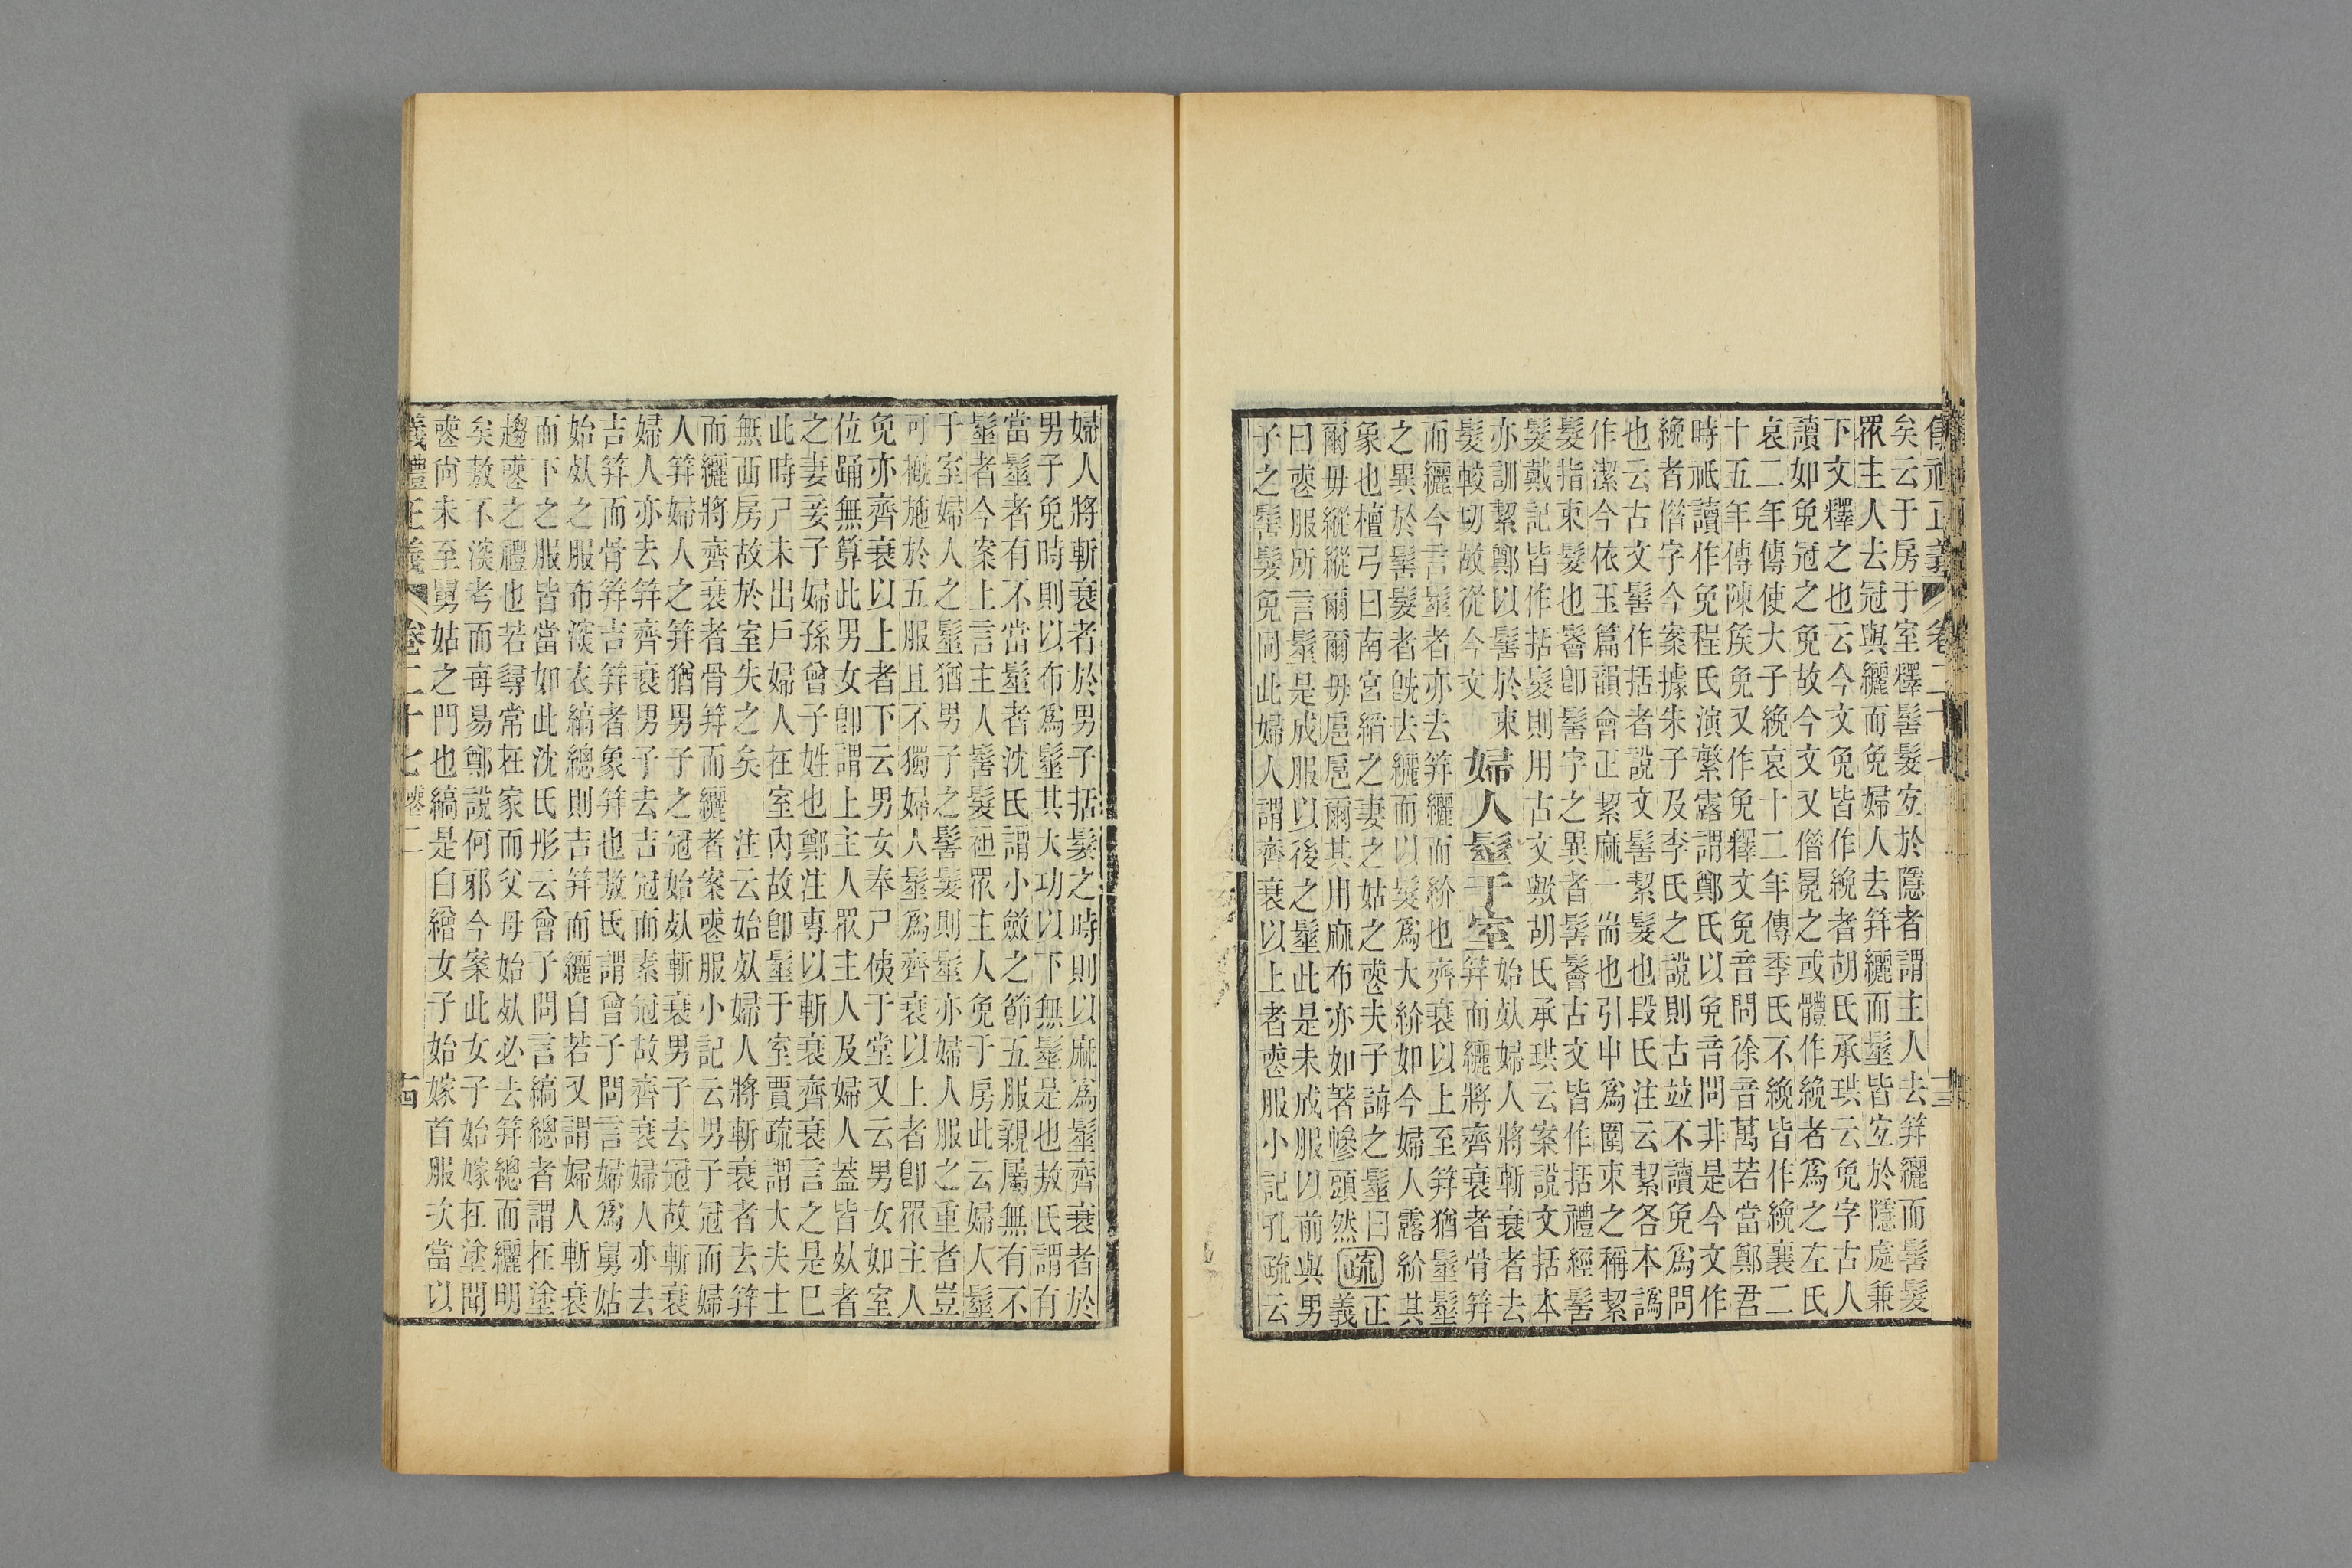 儀禮正義 卷二十七
矣云于房于室釋髺髮宜於隱者謂主人去笄纚而髺髮
眾主人去冠與纚而免婦人去笄纚而髽皆宜於隱處兼
下文釋之也云今文免皆作絻者胡氏承珙云免字古人
讀如免冠之免故今文又偺冕之或體作絻者爲之左氏
哀二年傳使大子絻哀十二年傳季氏不絻皆作絻襄二
十五年傳陳矦免又作免釋文免音問徐音萬若當鄭君
時祇讀作免程氏演繁露謂鄭氏以免音問非是今文作
絻者偺字今案據朱子及李氏之說則古竝不讀免爲問
也云古文髺作括者說文髺絜髮也段氏注云絜各本譌
作潔今依玉篇韻會正絜麻一耑也引申爲圍束之稱絜
髮指束髮也鬠卽髺字之異者髺鬠古文皆作括禮經髺
髮戴記皆作括髮則用古文與胡氏承珙云案說文括本
亦訓絜鄭以髺於束
髮較切故從今文
婦人髽于室
始㱙婦人將斬衰者去
笄而纚將齊衰者骨笄
而纚今言髽者亦去笄纚而紒也齊衰以上至笄猶髽髽
之異於髺髮者旣去纚而以髮爲大紒如今婦人露紒其
象也檀弓曰南宮縚之妻之姑之喪夫子誨之髽曰
爾毋縱縱爾爾毋扈扈爾其用麻布亦如著幓頭然
疏
正義
曰喪服所言髽是成服以後之髽此是未成服以前與男
子之髺髮免同此婦人謂齊衰以上者喪服小記孔疏云
婦人將斬衰者於男子括髮之時則以麻爲髽齊衰者於
男子免時則以布爲髽其大功以下無髽是也敖氏謂有
當髽者有不當髽者沈氏謂小斂之節五服親屬無有不
髽者今案上言主人髺髮袒眾主人免于房此云婦人髽
于室婦人之髽猶男子之髺髮則髽亦婦人服之重者豈
可槪施於五服且不獨婦人髽爲齊衰以上者卽眾主人
免亦齊衰以上者下云男女奉尸侇于堂又云男女如室
位踊無算此男女卽謂上主人眾主人及婦人蓋皆㱙者
之妻妾子婦孫曾子姓也鄭注專以斬衰齊衰言之是巳
此時尸未出戶婦人在室內故卽髽于室賈疏謂大夫士
無西房故於室失之矣 注云始㱙婦人將斬衰者去笄
而纚將齊衰者骨笄而纚者案喪服小記云男子冠而婦
人笄婦人之笄猶男子之冠始㱙斬衰男子去冠故斬衰
婦人亦去笄齊衰男子去吉冠而素冠故齊衰婦人亦去
吉笄而骨笄吉笄者象笄也敖氏謂曾子問言婦爲舅姑
始㱙之服布深衣縞總則吉笄而纚自若又謂婦人斬衰
而下之服皆當如此沈氏彤云曾子問言縞總者謂在塗
趨喪之禮也若尋常在家而父母始㱙必去笄總而纚明
矣敖不深考而每易鄭說何邪今案此女子始嫁在塗聞
喪尚未至舅姑之門也縞是白繒女子始嫁首服次當以
儀禮正義 卷二十七 喪二 十四